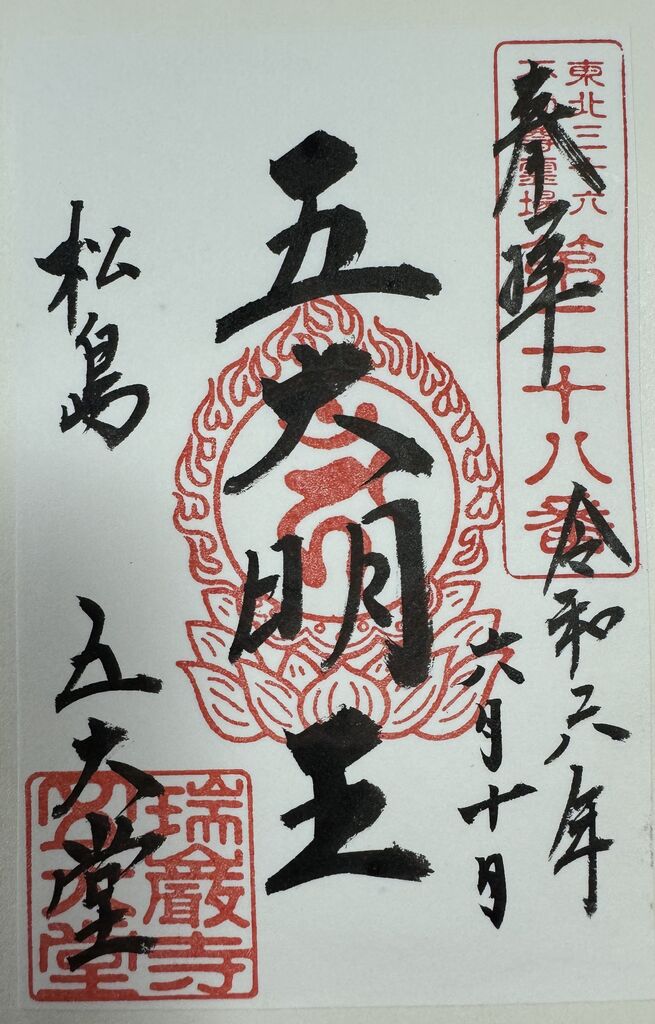 東北三十六
不動尊霊場
第二十八番
奉拝
令和六年
六月十日
五大明王
松島
五大堂
瑞巌寺
五大堂